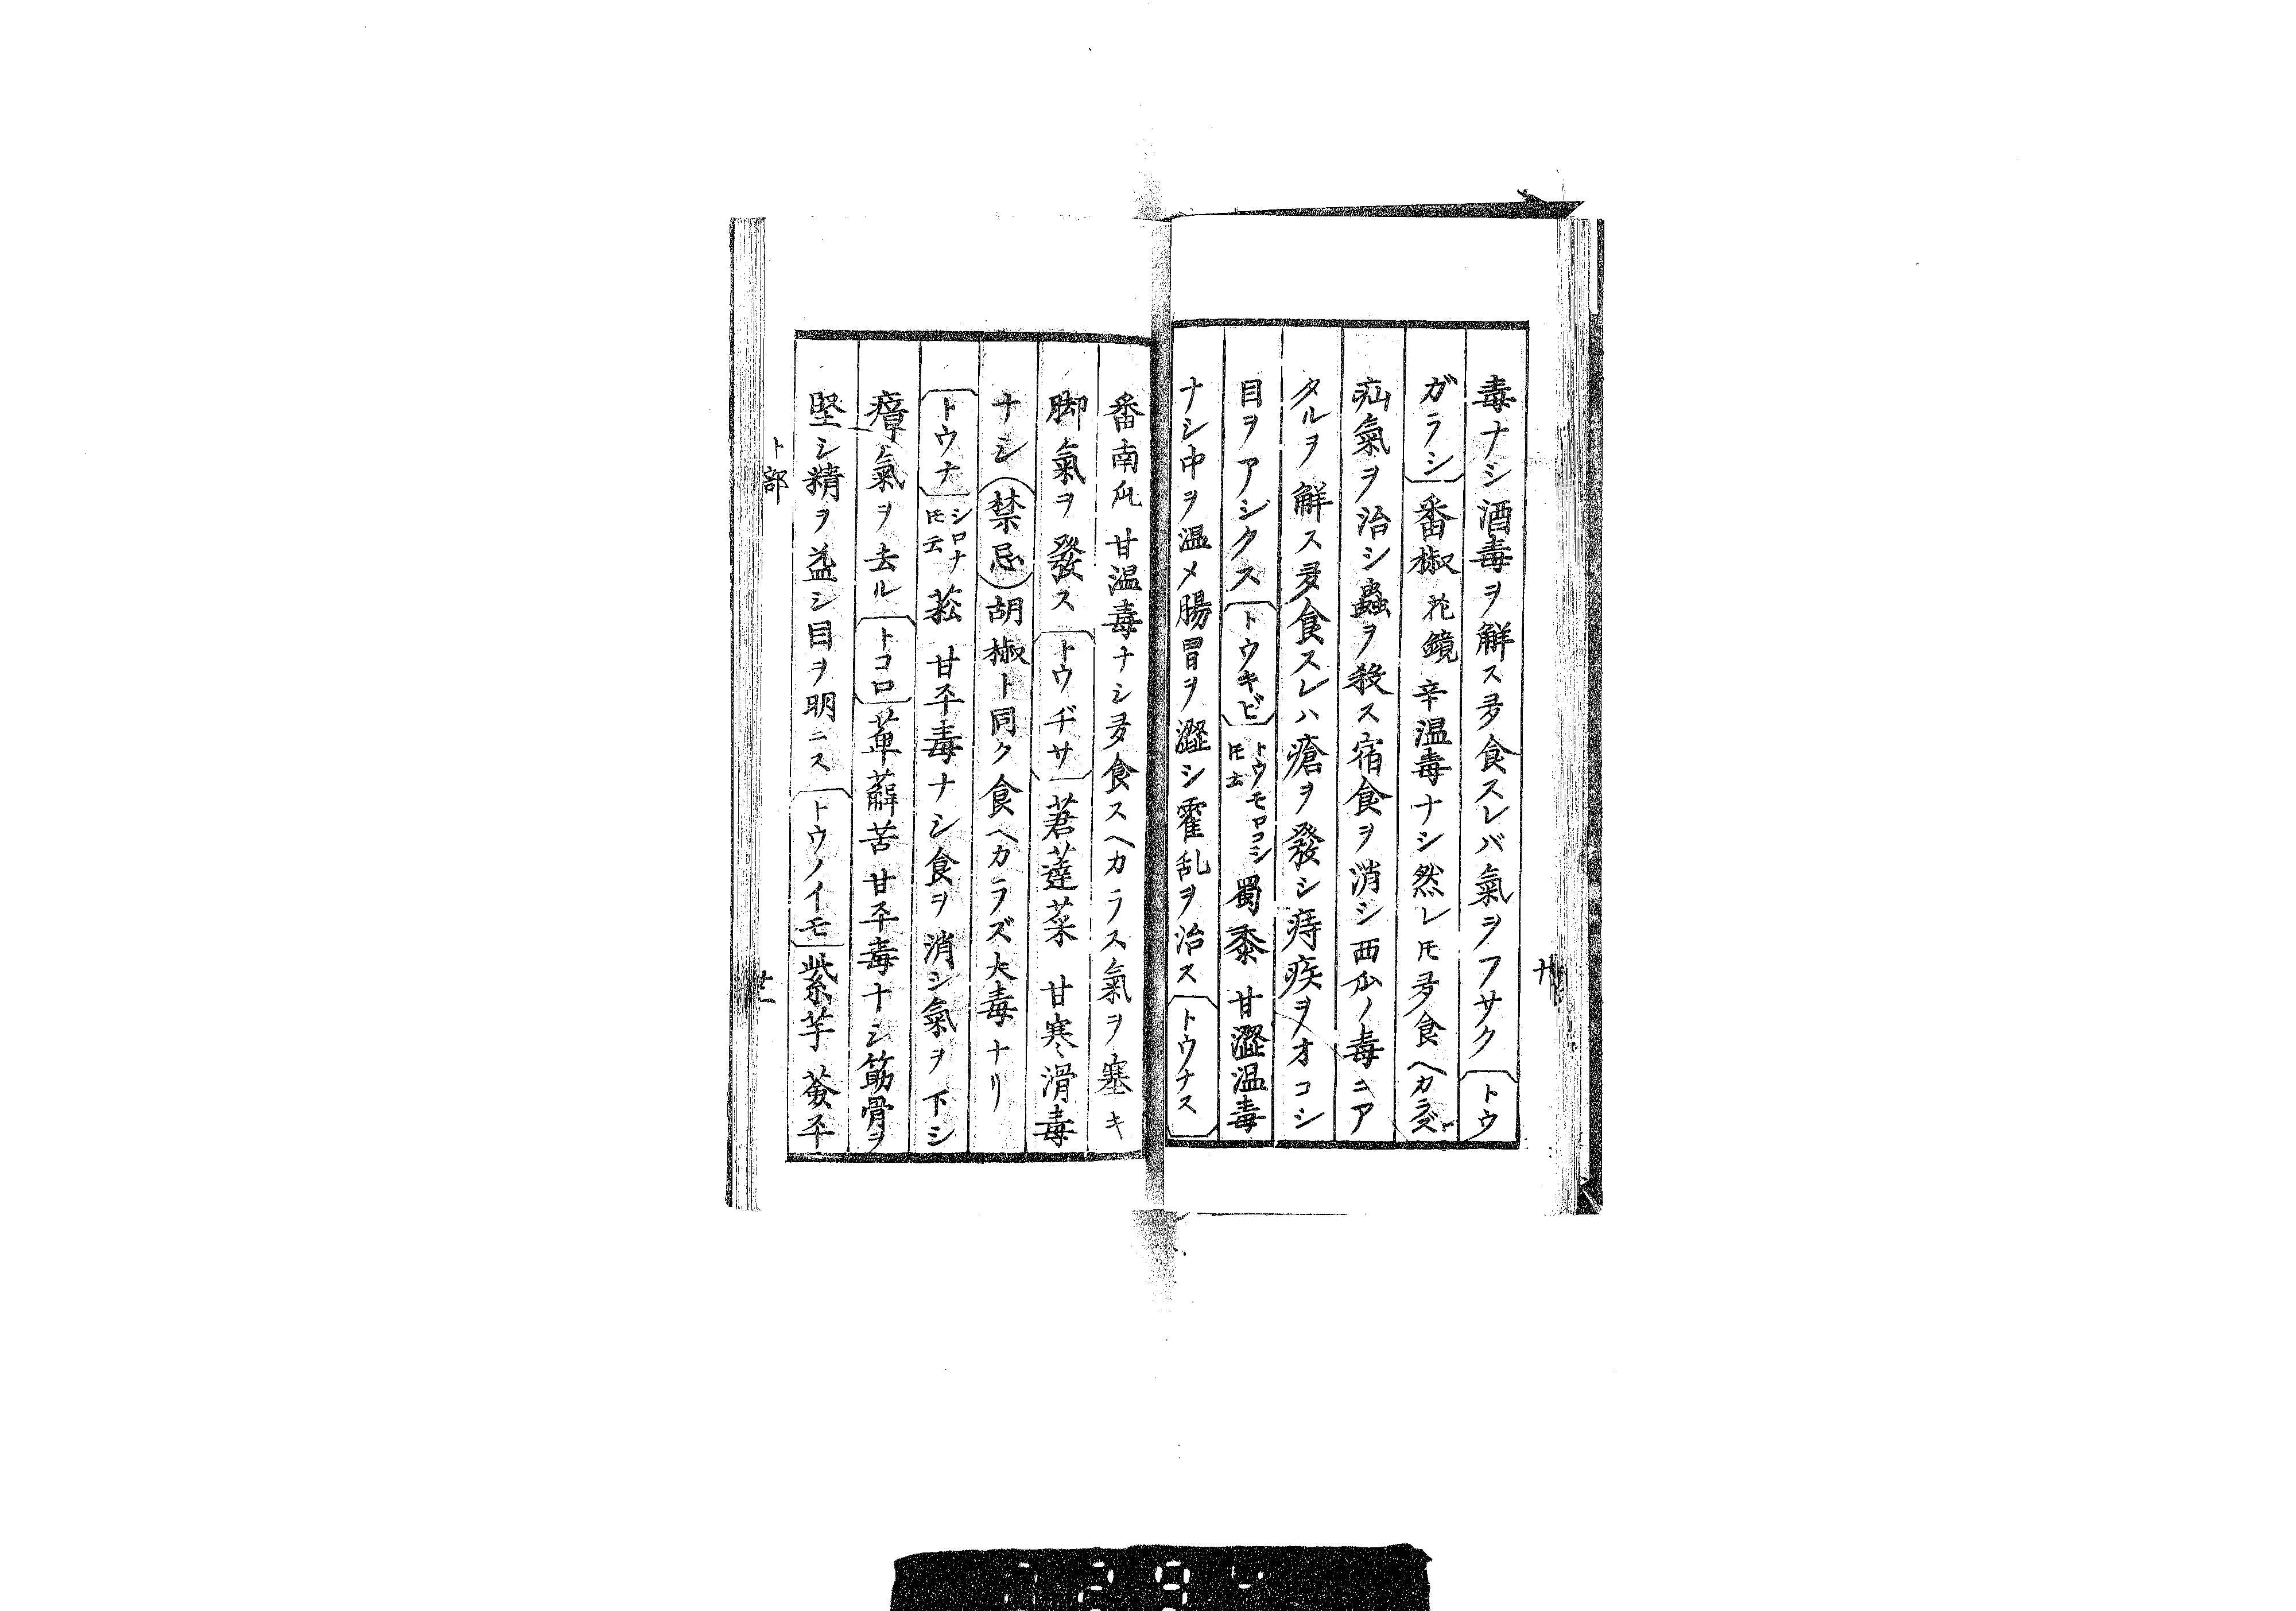 毒ナシ酒毒ヲ解ス多食スレバ氣ヲフサク トウ
ガラシ 番椒 花鏡 辛温毒ナシ然レ𪜈多食ヘカラズ
疝氣ヲ治シ蟲ヲ殺ス宿食ヲ消シ西瓜ノ毒ニア
タルヲ解ス多食スレハ瘡ヲ發シ痔疾ヲオコシ
目ヲアシクス トウキビ トウモロコシ𪜈云 蜀黍 甘澀温毒
ナシ中ヲ温メ腸胃ヲ澀シ霍乱ヲ治ス トウナス
廿
番南瓜 甘温毒ナシ多食スヘカラス氣ヲ塞キ
脚氣ヲ發ス トウヂサ 莙薘菜 甘寒滑毒
ナシ 禁忌 胡椒ト同ク食ヘカラズ大毒ナリ
トウナ シロナ𪜈云 菘 甘平毒ナシ食ヲ消シ氣ヲ下シ
瘴氣ヲ去ル トコロ 萆薢 苦甘平毒ナシ筋骨ヲ
堅シ精ヲ益シ目ヲ明ニス トウノイモ 紫芋 薟平
ト部 廿一